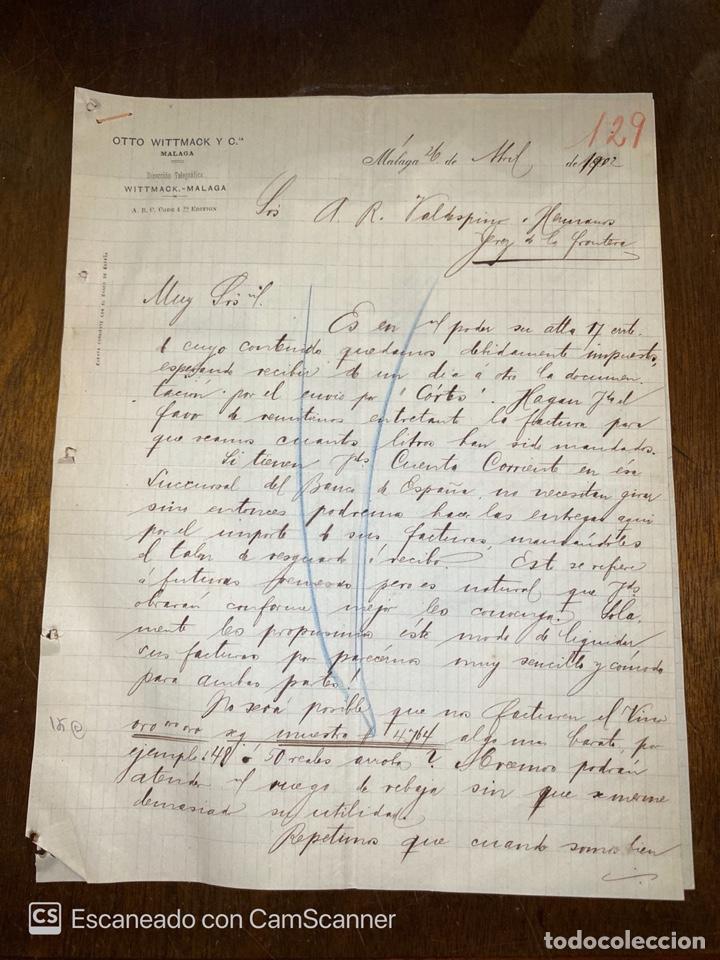 129
OTTO WITTMACK Y C.ia
MALAGA
Dirección Telegráfica
WITTMACK.-MALAGA
A. B. C. CODE 4th EDITION
CUENTA CORRIENTE CON EL BANCO DE ESPAÑA
Málaga 26 de Abril de 1902
Srs A. R. Valdespino y Hermanos
Jerez de la Frontera
Muy Srs
Es en poder su atta 17 crrte.
de cuyo contenido quedamos debidamente impuestos,
esperando recibir de un dia á otro la documen-
tación por el envio por "Córtes". Hagan Vds el
favor de remitirnos entretanto la factura para
que veamos cuanto litros han sido mandados.
Si tienen Vds Cuenta Corriente en ésa
Succursal del Banco de España, no necesitan girar
sino entonces podremos hacer las entregas aqui
por el importe de sus facturas, mandándoles
el talon de resguardo ó recibo. Esto se refiere
á futuras pero es natural que Vds
obrarán conforme mejor les convenga. Sola-
mente les propusimos éste modo de liquidar
sus facturas por parecernos muy sencillo y cómodo
para ambas partes!
No será posible que nos facturen el Vino
oro sg muestra # 4764 algo mas barato, por
ejemplo á 48 ó 50 reales arroba? Acaso podrán
atender el ruego de rebaja sin que merme
demasiado su utilidad.
Repetimos que cuando somos bien
CS Escaneado con CamScanner
todocoleccion